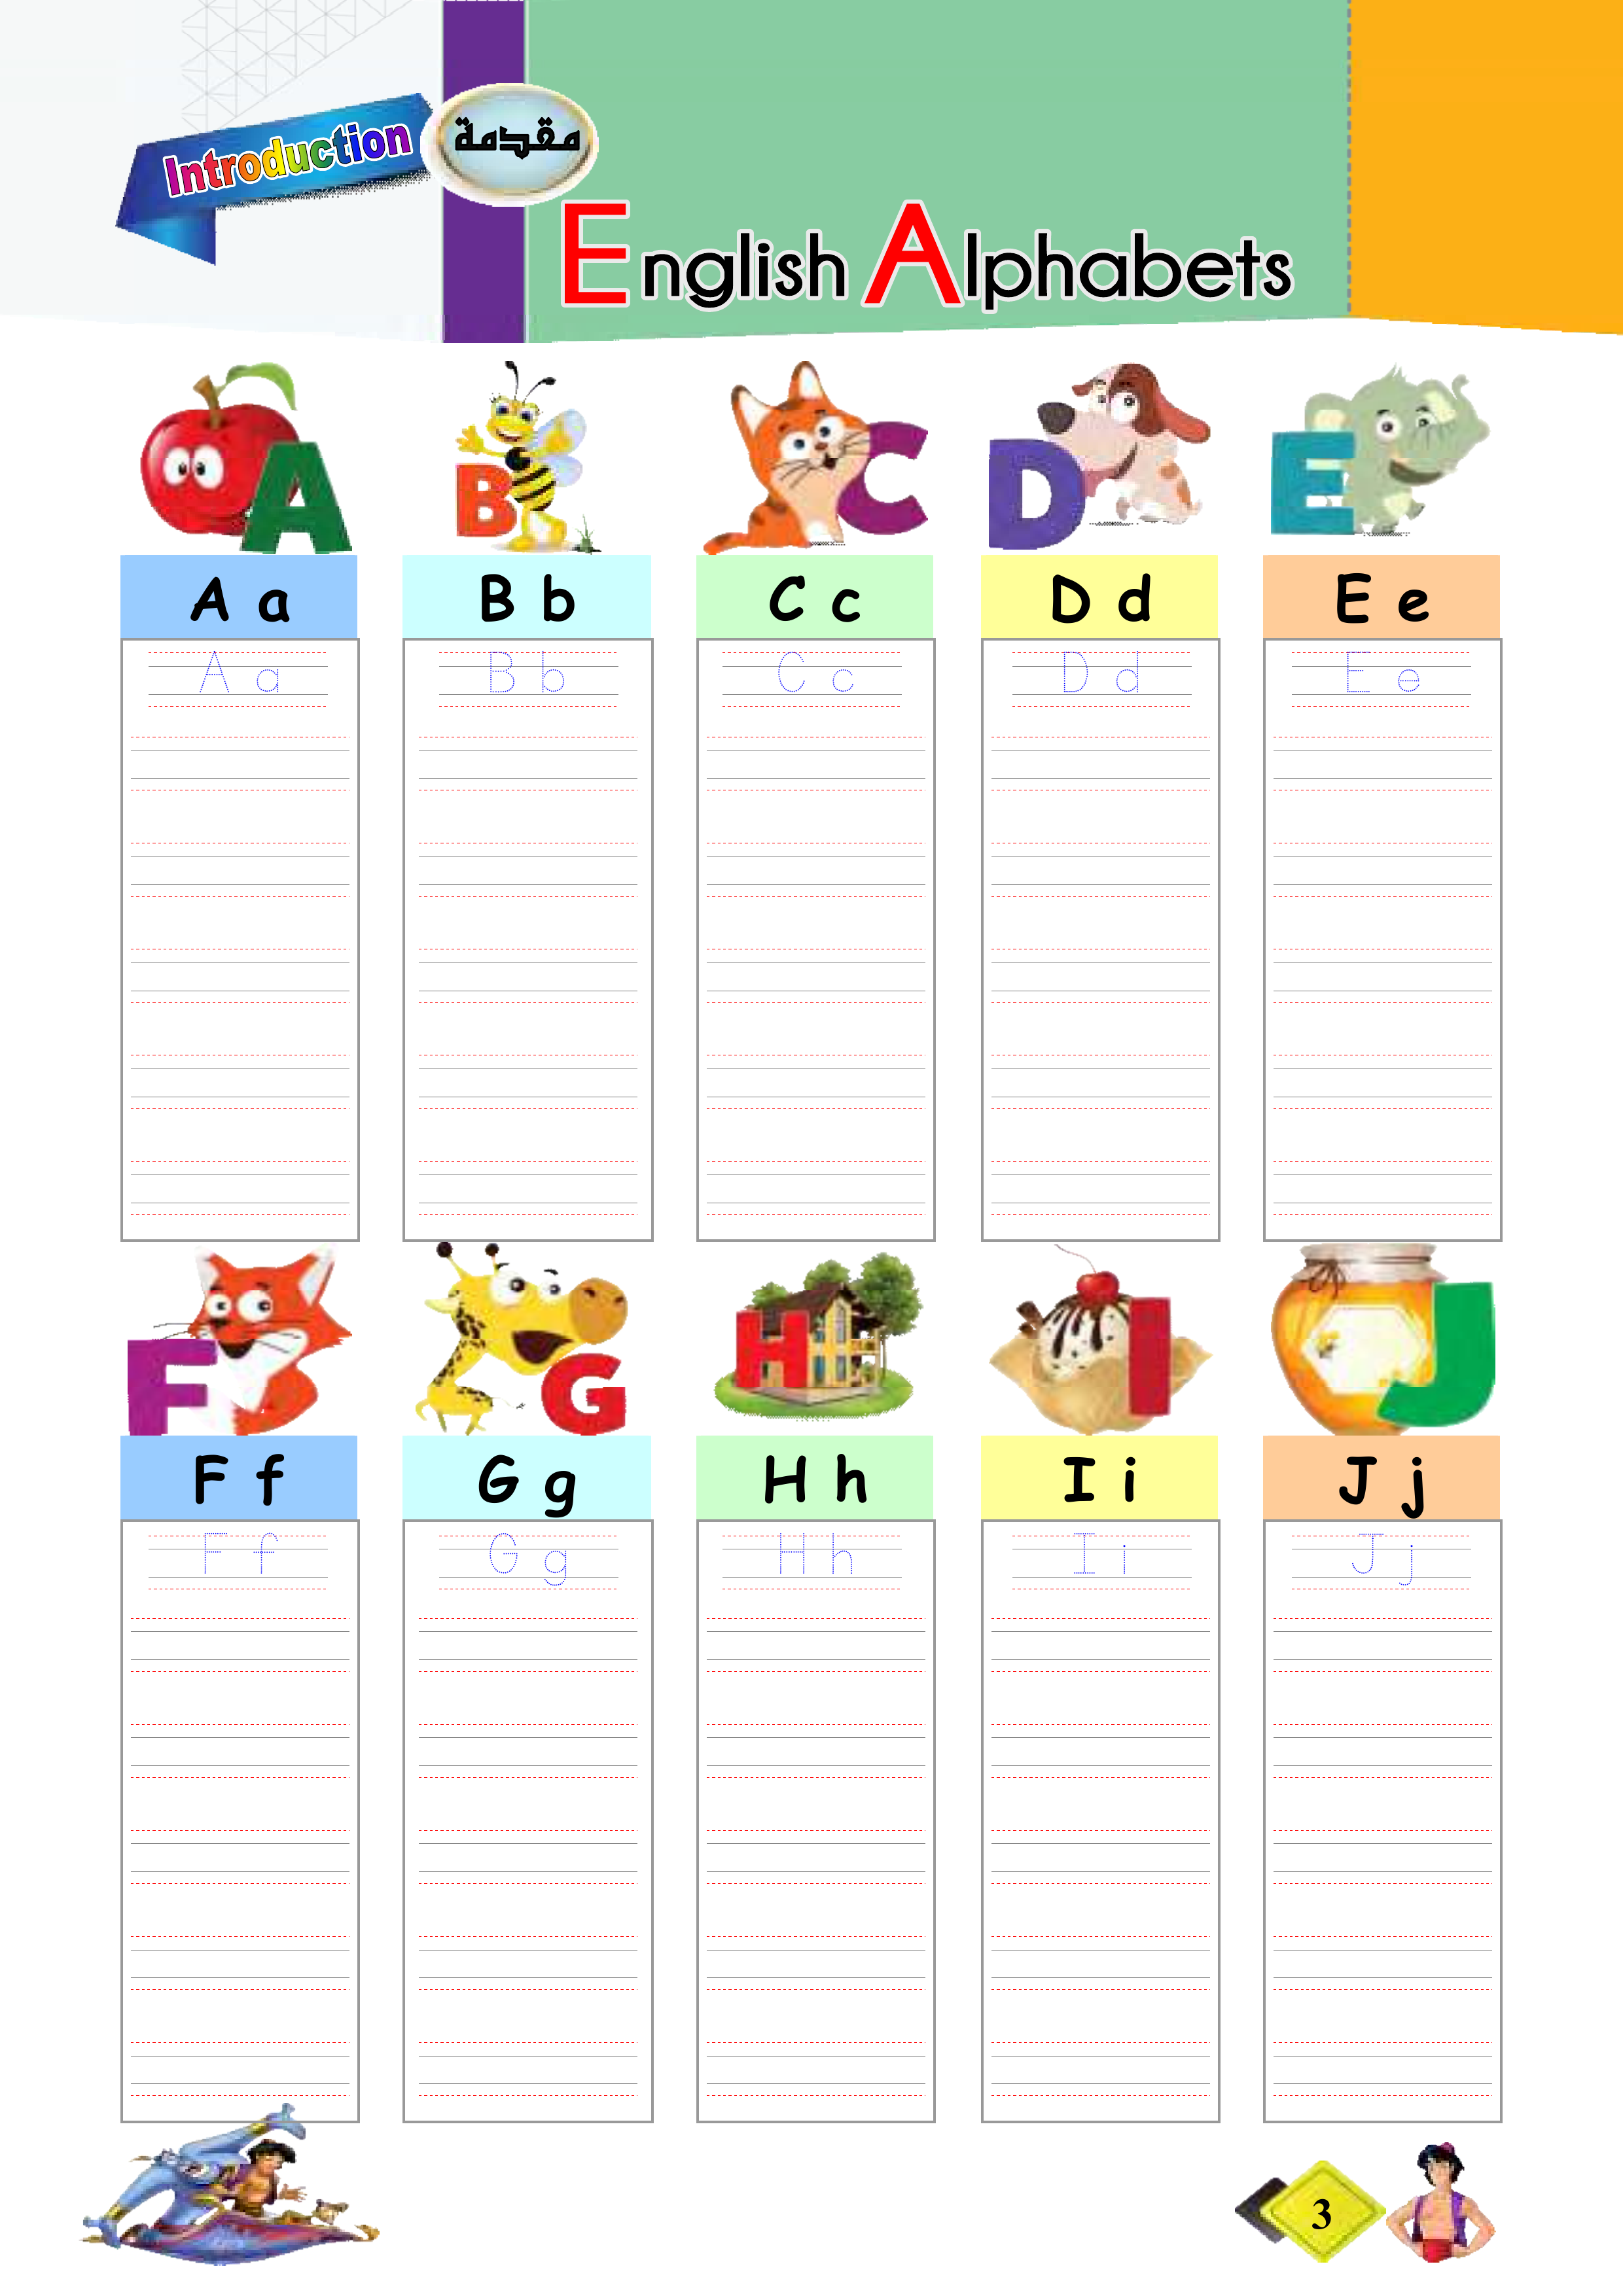 Introduction
مقدمة
English Alphabets
A B C D E
A a B b C c D d E e
A a B b C c D d E e
F G H I J
F f G g H h I i J j
F f G g H h I i J j
3